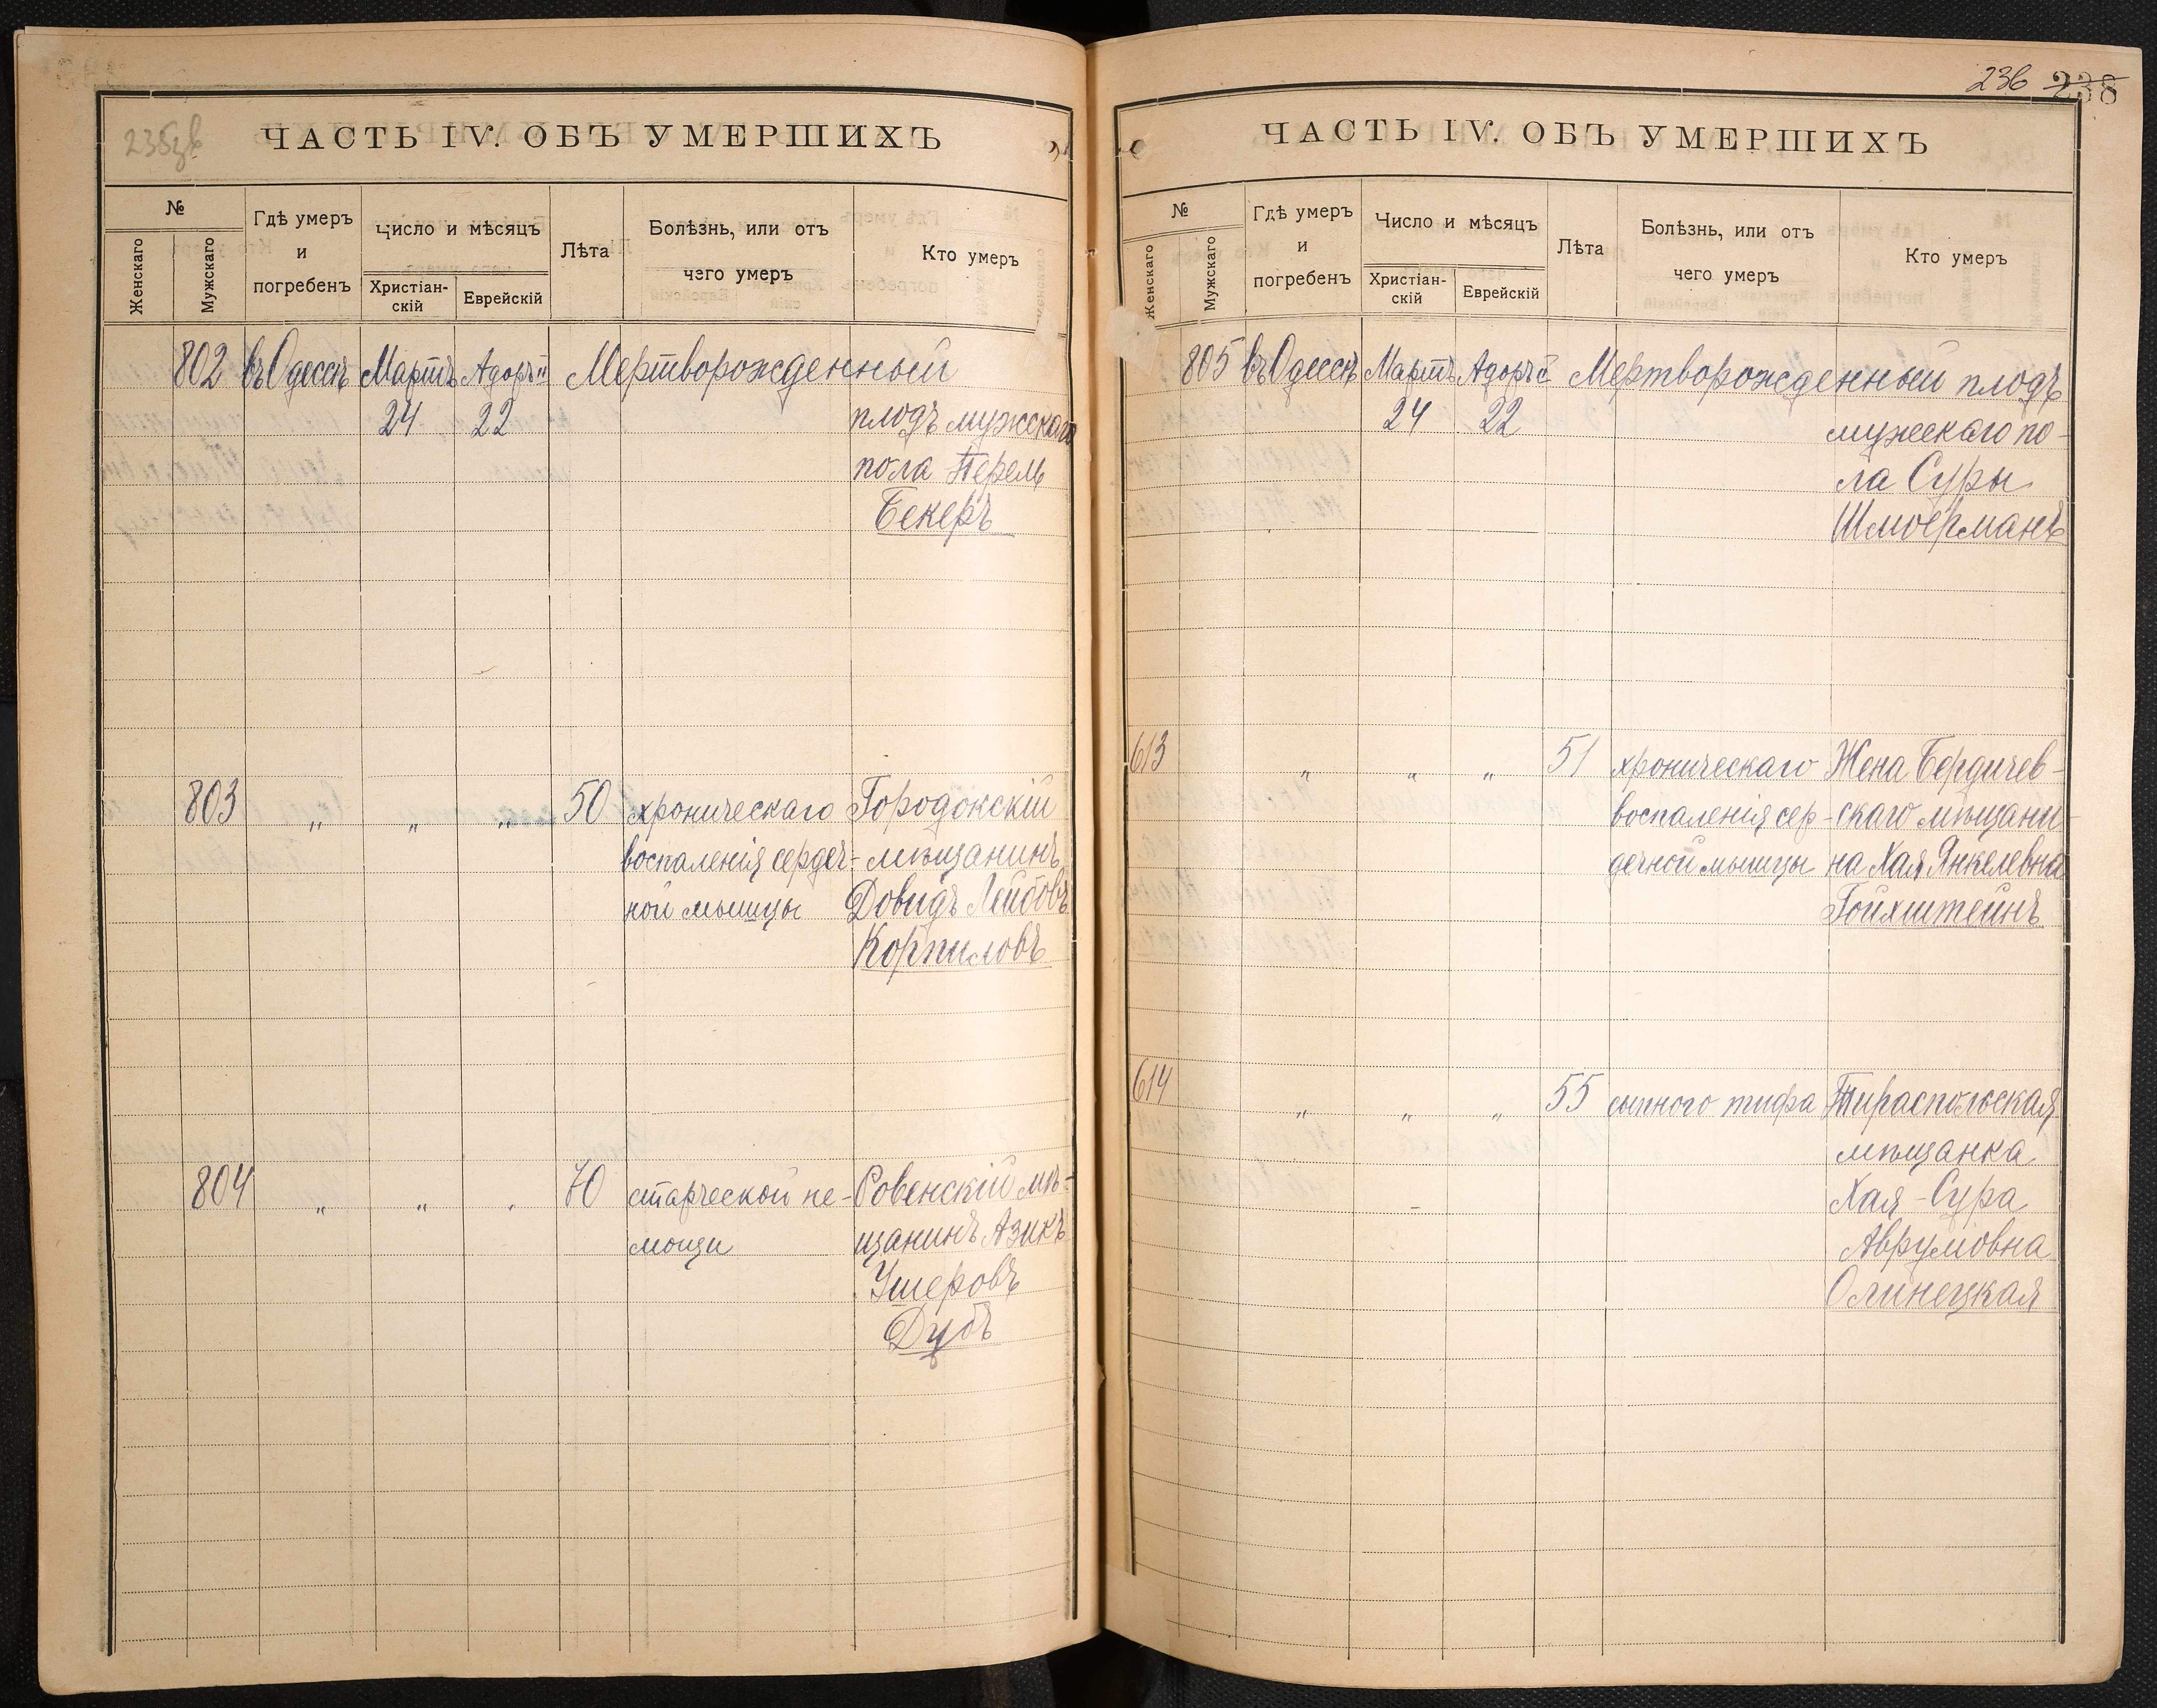 235зв
ЧАСТЬ IV. ОБЪ УМЕРШИХЪ
№
Женскаго
Мужскаго
Гдѣ умеръ
и
погребенъ
Число и мѣсяцъ
Христіан-
скій
Еврейскій
Лѣта
Болѣзнь, или отъ
чего умеръ
Кто умеръ
802 въ Одессѣ Мартъ Адоръ II Мертворожденный
24 22 плодъ мужскаго
пола Перель
Бекеръ
803 " " " 50 хроническаго Городокскій
воспаленія сердеч- мѣщанинъ
ной мышцы Довидъ Лейбовъ
Корпиловъ
804 " " " 70 старческой не- Ровенскій мѣ-
мощи щанинъ Азикъ
Ушеровъ
Дубъ
236 238
ЧАСТЬ IV. ОБЪ УМЕРШИХЪ
№
Женскаго
Мужскаго
Гдѣ умеръ
и
погребенъ
Число и мѣсяцъ
Христіан-
скій
Еврейскій
Лѣта
Болѣзнь, или отъ
чего умеръ
Кто умеръ
805 въ Одессѣ Мартъ Адоръ II Мертворожденный плодъ
24 22 мужескаго по-
ла Суры
613 " " " 51 хроническаго Жена Бердичев-
воспаленія сер- скаго мѣщани-
дечной мышцы на Хая Янкелевна
Гойхштейнъ
614 " " " 55 сыпного тифа Тираспольская
мѣщанка
Хая-Сура
Аврумовна
Олинецкая